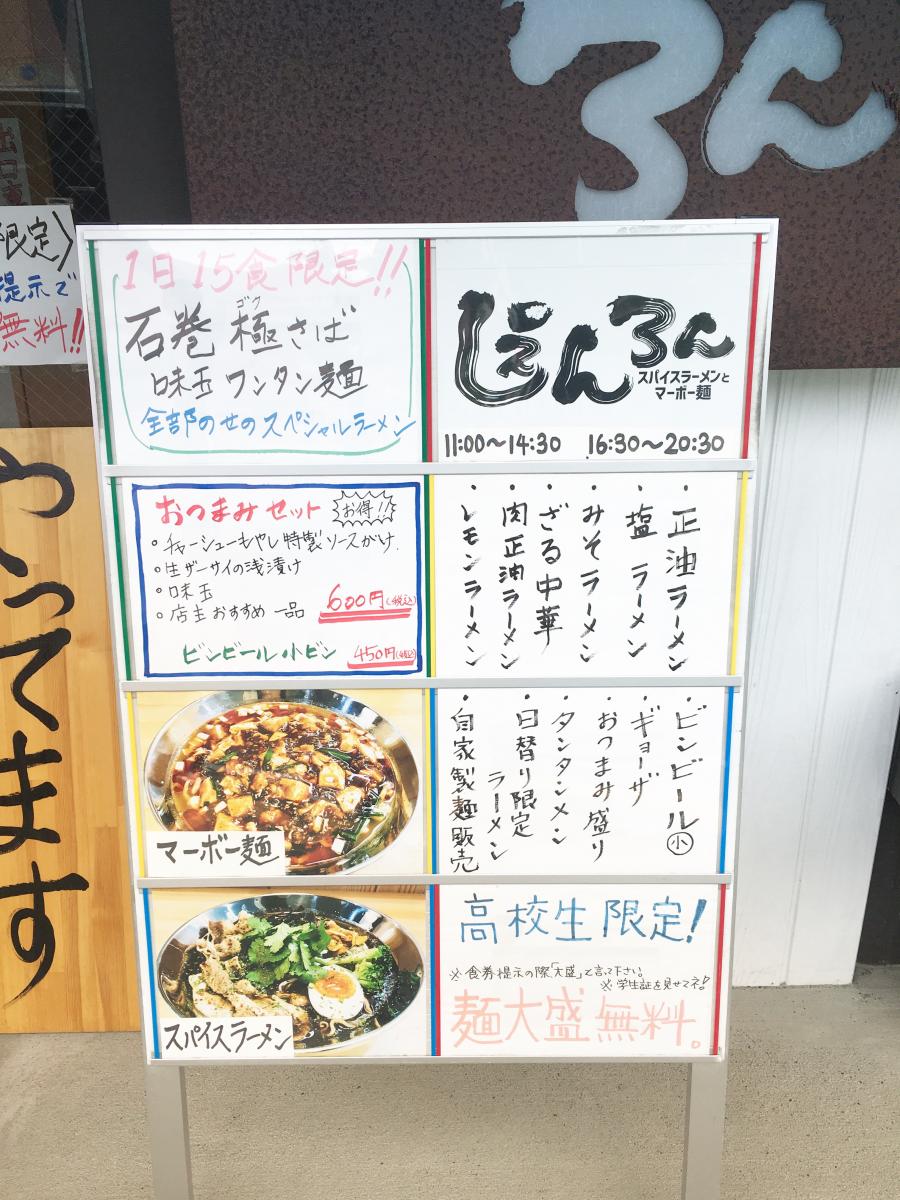 ろん
限定〉
提示で
無料!!
ってます
1日15食限定!!
石巻 極さば
ゴク
味玉 ワンタン麺
全部のせのスペシャルラーメン
じぇんろん
スパイスラーメンと
マーボー麺
11:00〜14:30 16:30〜20:30
おつまみセット
お得!!
・チャーシューもやし特製ソースがけ
・生ザーサイの浅漬け
・味玉
・店主おすすめ一品
600円(税込)
ビンビール小ビン 450円(税込)
・正油ラーメン
・塩ラーメン
・みそラーメン
・ざる中華
・肉正油ラーメン
・レモンラーメン
マーボー麺
・ビンビール小
・ギョーザ
・おつまみ盛り
・タンタンメン
・日替り限定
ラーメン
・自家製麺販売
スパイスラーメン
高校生限定!
※食券提示の際「大盛」と言って下さい。
※学生証を見せてネ!
麺大盛無料。